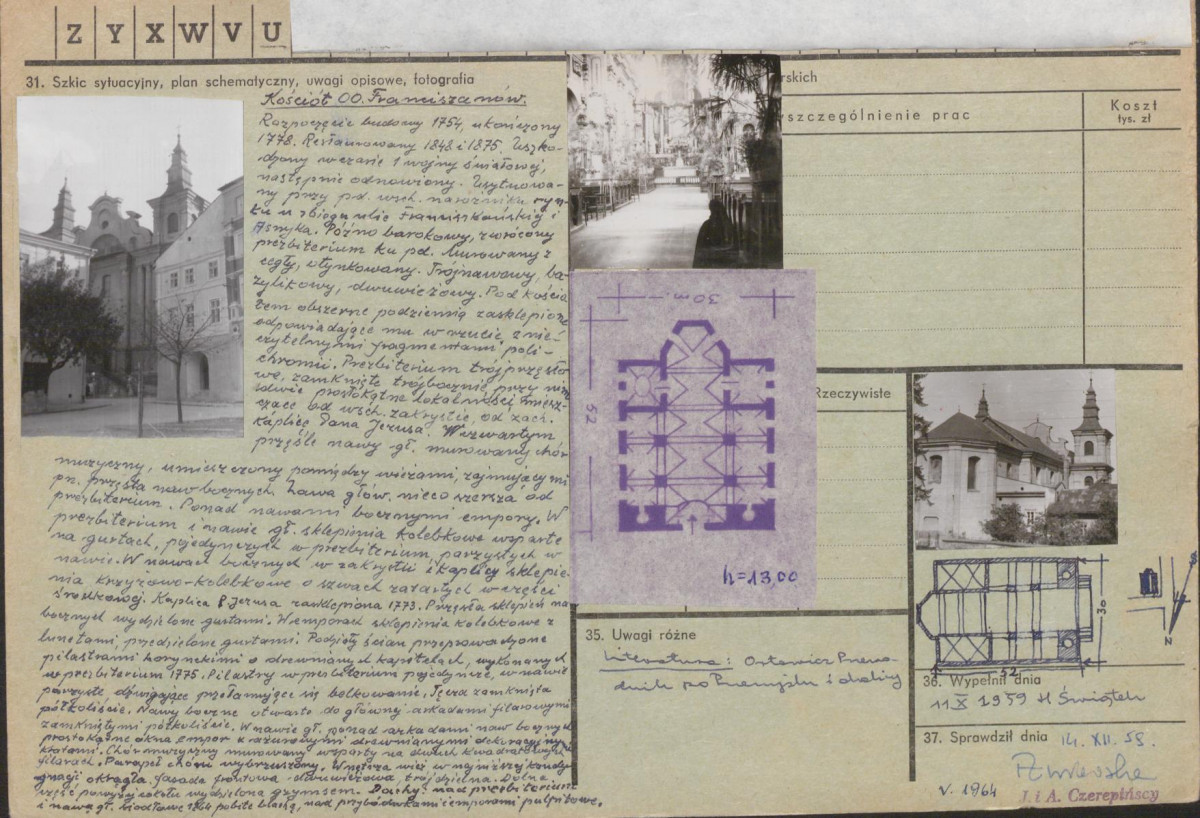 Z Y X W V U
31. Szkic sytuacyjny, plan schematyczny, uwagi opisowe, fotografia
Kościół OO. Franciszkanów.
Rozpoczęcie budowy 1754, ukończony
1778. Restaurowany 1848 i 1875. Uszko-
dzony w czasie 1 wojny światowej,
następnie odnowiony. Usytuowa-
ny przy pd. wsch. narożniku ryn-
ku u zbiegu ulic Franciszkańskiej i
Asnyka. Późno barokowy, zwrócony
prezbiterium ku pd. Murowany z
cegły, otynkowany. Trójnawowy, ba-
zylikowy, dwuwieżowy. Pod kościo
łem obszerne podziemia zasklepione
odpowiadające mu w rzucie z nie-
czytelnymi fragmentami poli-
chromii. Prezbiterium trójprzęsło
we, zamknięte trójbocznie, przy nim
dwie prostokątne lokalności miesz-
czące od wsch. zakrystię, od zach.
kaplicę Pana Jezusa. W czwartym
przęśle nawy gł. murowany chór
muzyczny, umieszczony pomiędzy wieżami, zajmującymi
pn. przęsła naw bocznych. Nawa głów. nieco szersza od
prezbiterium. Ponad nawami bocznymi empory. W
prezbiterium i nawie gł. sklepienia kolebkowe wsparte
na gurtach, pojedynczych w prezbiterium, parzystych w
nawie. W nawach bocznych w zakrystii i kaplicy sklepie-
nia krzyżowo-kolebkowe o szwach zatartych w części
środkowej. Kaplica P. Jezusa zasklepiona 1773. Przęsła sklepień naw
bocznych wydzielone gurtami. W emporach sklepienia kolebkowe z
lunetami, przedzielone gurtami. Podziały ścian przeprowadzone
pilastrami korynckimi o drewnianych kapitelach, wykonanych
w prezbiterium 1775. Pilastry w prezbiterium pojedyncze, w nawie
parzyste dźwigające przełamujące się belkowanie. Tęcza zamknięta
półkoliście. Nawy boczne otwarte do głównej arkadami filarowymi
zamkniętymi półkoliście. W nawie gł. ponad arkadami naw bocznych
prostokątne okna empor z ażurowymi drewnianymi dekoracyjnymi
kratami. Chór muzyczny murowany wsparty na dwuch kwadratowych
filarach. Parapet chóru wybrzuszony. Wnętrza wież w najniższej kondy-
gnacji okrągłe. Fasada frontowa dwuwieżowa, trójdzielna. Dolna
część powyżej cokołu wydzielona gzymsem. Dachy: nad prezbiterium
i nawą gł. siodłowe 1864 pobite blachą, nad przybudówkami i emporami pulpitowe.
rskich
szczególnienie prac
Koszt
tys. zł
30 m.
52
h=13,00
Rzeczywiste
35. Uwagi różne
Literatura: Orłowicz Przewo-
dnik po Przemyślu i okolicy
30
52
N
36. Wypełnił dnia
11 X 1959 H Świątek
37. Sprawdził dnia 14. XII. 59.
V. 1964
J. i A. Czerepińscy